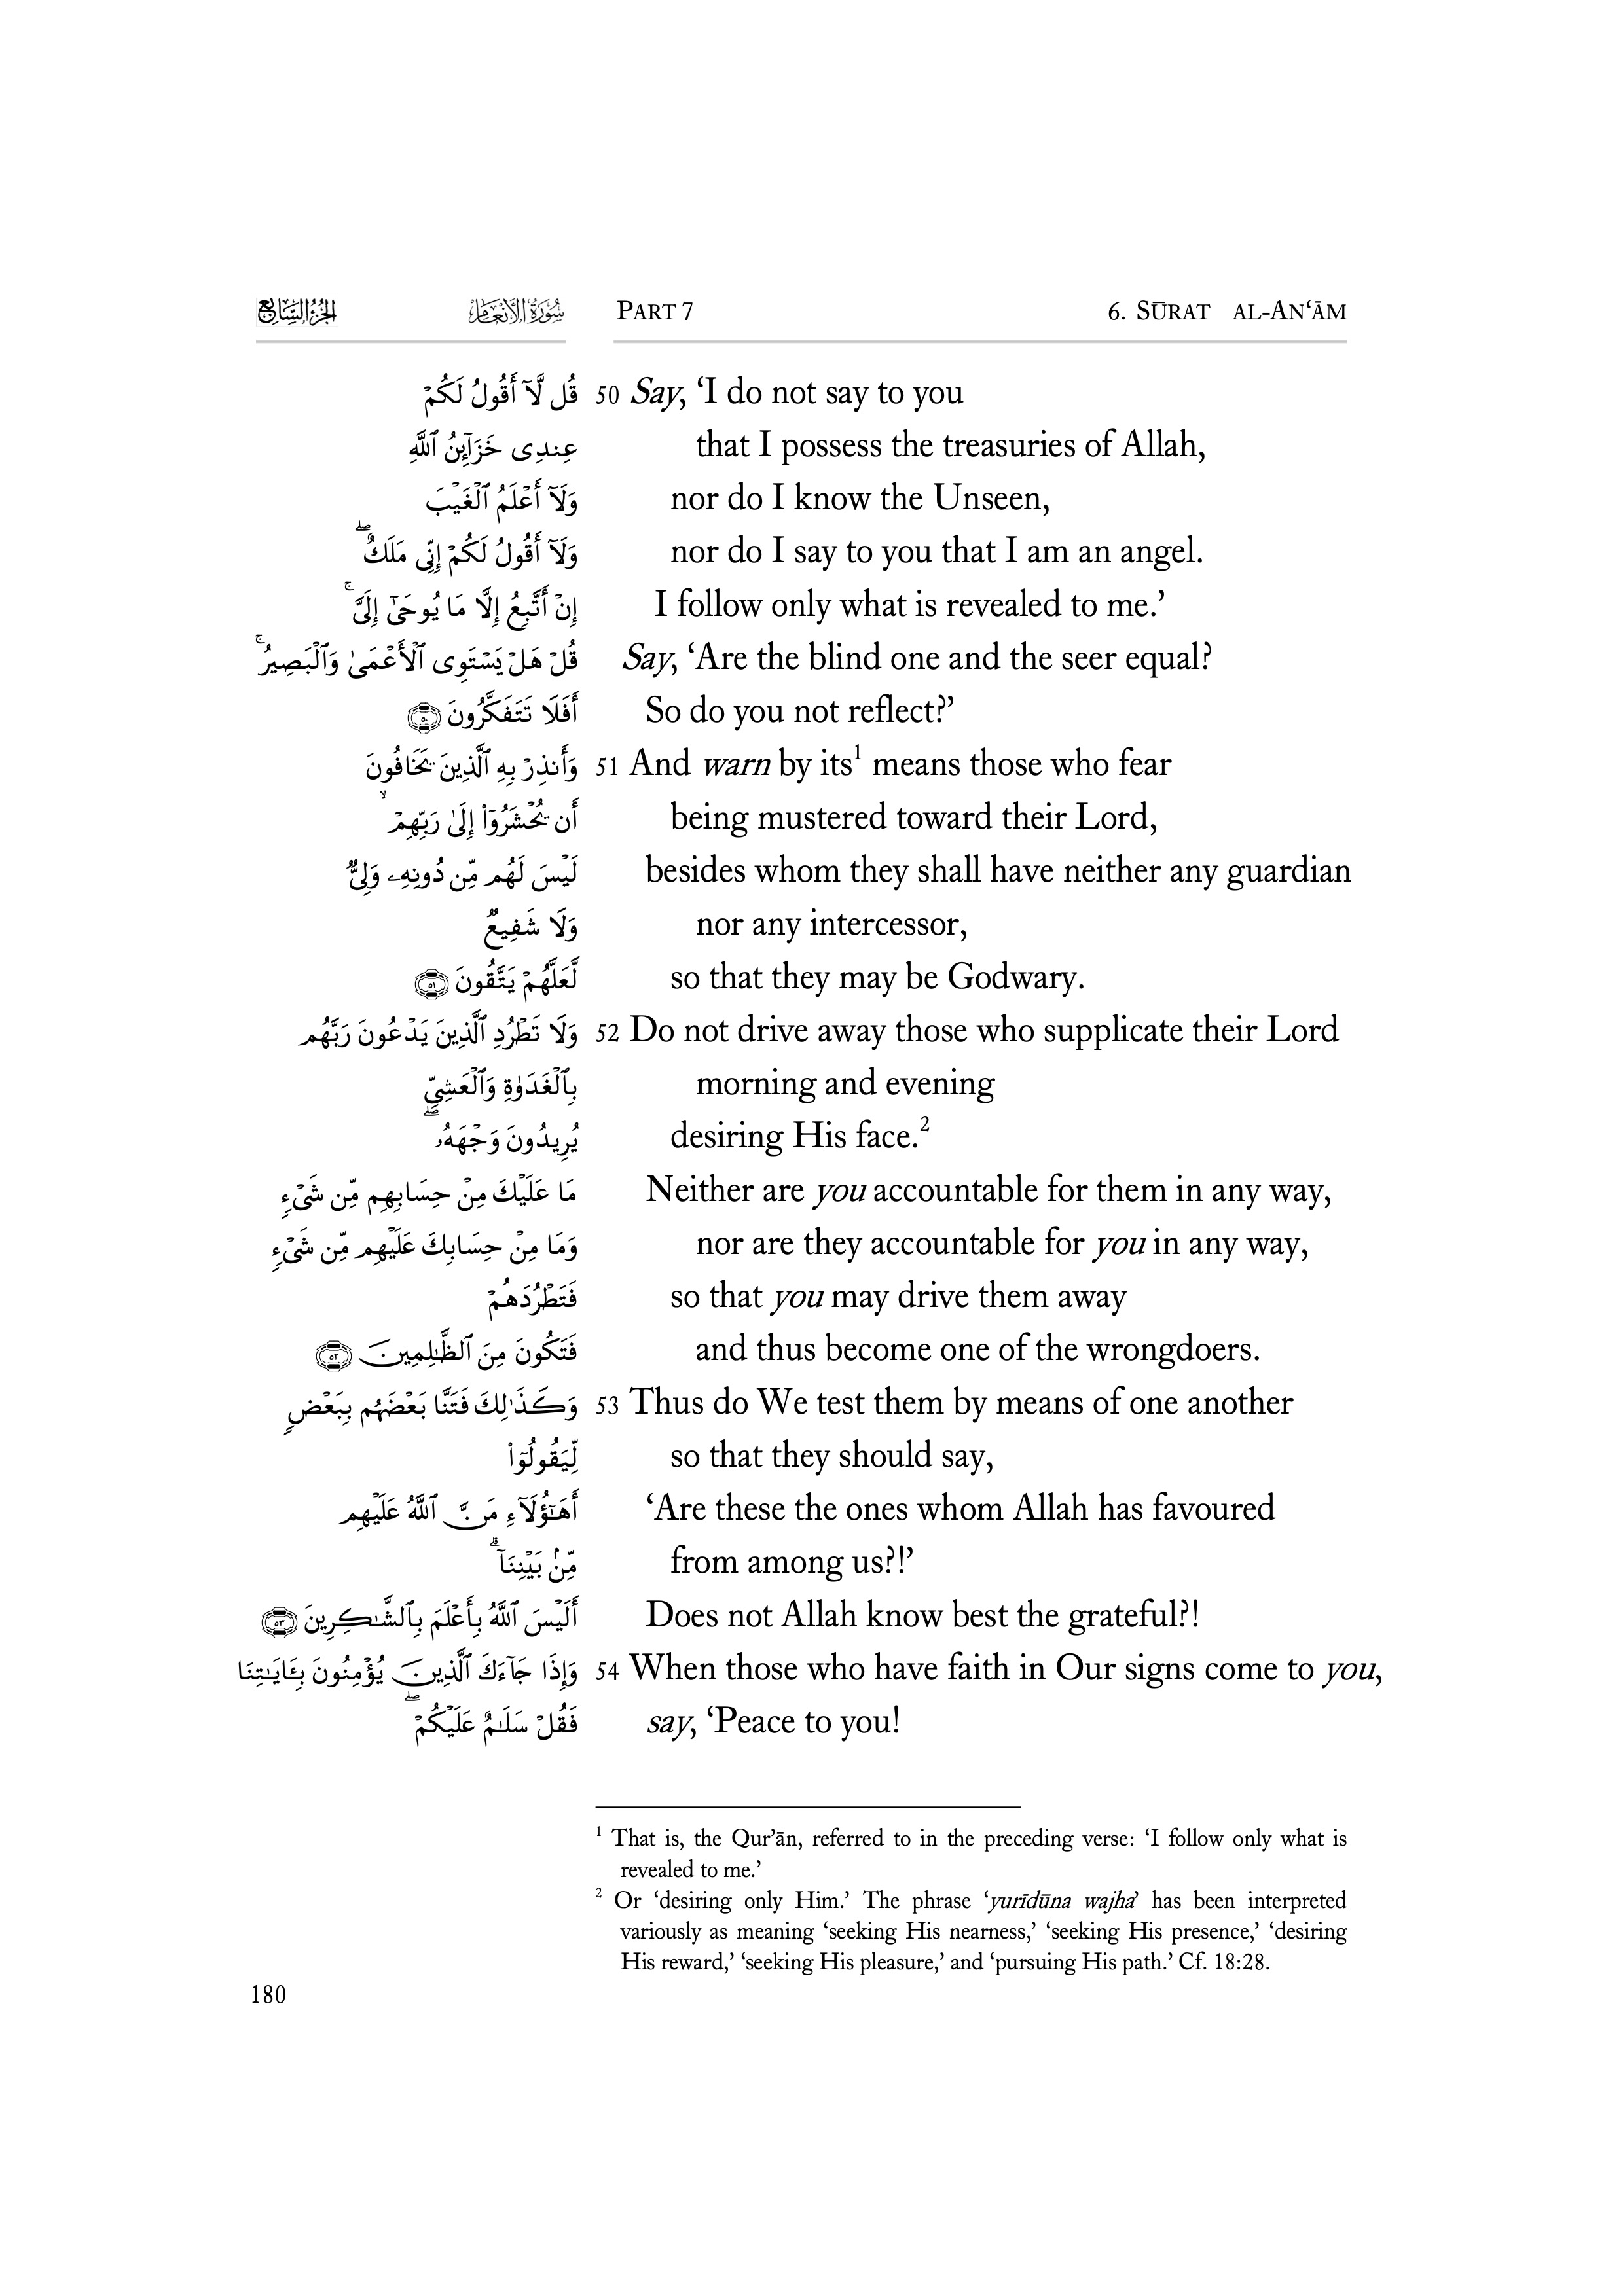 الجزء السابع سورة الأنعام PART 7 6. SŪRAT AL-AN‘ĀM
قُل لَّآ أَقُولُ لَكُمْ 50 Say, ‘I do not say to you
عِندِى خَزَآئِنُ ٱللَّهِ that I possess the treasuries of Allah,
وَلَآ أَعْلَمُ ٱلْغَيْبَ nor do I know the Unseen,
وَلَآ أَقُولُ لَكُمْ إِنِّى مَلَكٌ ۖ nor do I say to you that I am an angel.
إِنْ أَتَّبِعُ إِلَّا مَا يُوحَىٰٓ إِلَىَّ ۚ I follow only what is revealed to me.’
قُلْ هَلْ يَسْتَوِى ٱلْأَعْمَىٰ وَٱلْبَصِيرُ ۚ Say, ‘Are the blind one and the seer equal?
أَفَلَا تَتَفَكَّرُونَ ٥٠ So do you not reflect?’
وَأَنذِرْ بِهِ ٱلَّذِينَ يَخَافُونَ 51 And warn by its¹ means those who fear
أَن يُحْشَرُوٓا۟ إِلَىٰ رَبِّهِمْ ۙ being mustered toward their Lord,
لَيْسَ لَهُم مِّن دُونِهِۦ وَلِىٌّ besides whom they shall have neither any guardian
وَلَا شَفِيعٌ nor any intercessor,
لَّعَلَّهُمْ يَتَّقُونَ ٥١ so that they may be Godwary.
وَلَا تَطْرُدِ ٱلَّذِينَ يَدْعُونَ رَبَّهُم 52 Do not drive away those who supplicate their Lord
بِٱلْغَدَوٰةِ وَٱلْعَشِىِّ morning and evening
يُرِيدُونَ وَجْهَهُۥ ۖ desiring His face.²
مَا عَلَيْكَ مِنْ حِسَابِهِم مِّن شَىْءٍ Neither are you accountable for them in any way,
وَمَا مِنْ حِسَابِكَ عَلَيْهِم مِّن شَىْءٍ nor are they accountable for you in any way,
فَتَطْرُدَهُمْ so that you may drive them away
فَتَكُونَ مِنَ ٱلظَّـٰلِمِينَ ٥٢ and thus become one of the wrongdoers.
وَكَذَٰلِكَ فَتَنَّا بَعْضَهُم بِبَعْضٍ 53 Thus do We test them by means of one another
لِّيَقُولُوٓا۟ so that they should say,
أَهَـٰٓؤُلَآءِ مَنَّ ٱللَّهُ عَلَيْهِم ‘Are these the ones whom Allah has favoured
مِّنۢ بَيْنِنَآ ۗ from among us?!’
أَلَيْسَ ٱللَّهُ بِأَعْلَمَ بِٱلشَّـٰكِرِينَ ٥٣ Does not Allah know best the grateful?!
وَإِذَا جَآءَكَ ٱلَّذِينَ يُؤْمِنُونَ بِـَٔايَـٰتِنَا 54 When those who have faith in Our signs come to you,
فَقُلْ سَلَـٰمٌ عَلَيْكُمْ ۖ say, ‘Peace to you!
¹ That is, the Qur’ān, referred to in the preceding verse: ‘I follow only what is
revealed to me.’
² Or ‘desiring only Him.’ The phrase ‘yurīdūna wajha’ has been interpreted
variously as meaning ‘seeking His nearness,’ ‘seeking His presence,’ ‘desiring
His reward,’ ‘seeking His pleasure,’ and ‘pursuing His path.’ Cf. 18:28.
180